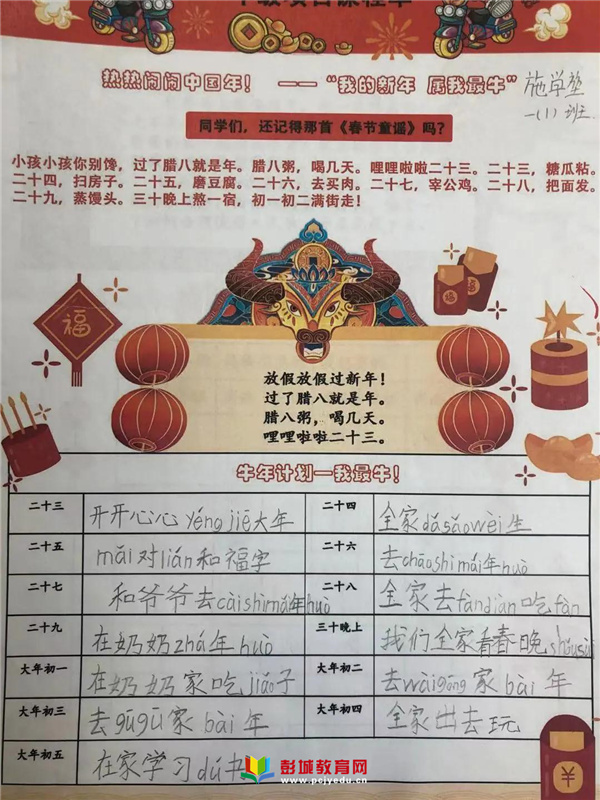 年级项目课程单
热热闹闹中国年！ ——“我的新年 属我最牛”
施学堃
一(1)班
同学们，还记得那首《春节童谣》吗？
小孩小孩你别馋，过了腊八就是年。腊八粥，喝几天。哩哩啦啦二十三。二十三，糖瓜粘。
二十四，扫房子。二十五，磨豆腐。二十六，去买肉。二十七，宰公鸡。二十八，把面发。
二十九，蒸馒头。三十晚上熬一宿，初一初二满街走！
福
放假放假过新年！
过了腊八就是年。
腊八粥，喝几天。
哩哩啦啦二十三。
牛年计划—我最牛！
二十三 开开心心yéng jiē大年 二十四 全家dǎsǎowèi生
二十五 mǎi对lián和福字 二十六 去chāoshì mǎi年huò
二十七 和爷爷去càishìmǎi年huò 二十八 全家去fàndiàn吃fàn
二十九 在奶奶zhá年huò 三十晚上 我们全家看春晚shǒusuì
大年初一 在奶奶家吃jiǎo子 大年初二 去wàigōng家bài年
大年初三 去gūgū家bài年 大年初四 全家出去玩
大年初五 在家学习dú书
彭城教育网
www.pcjyedu.cn